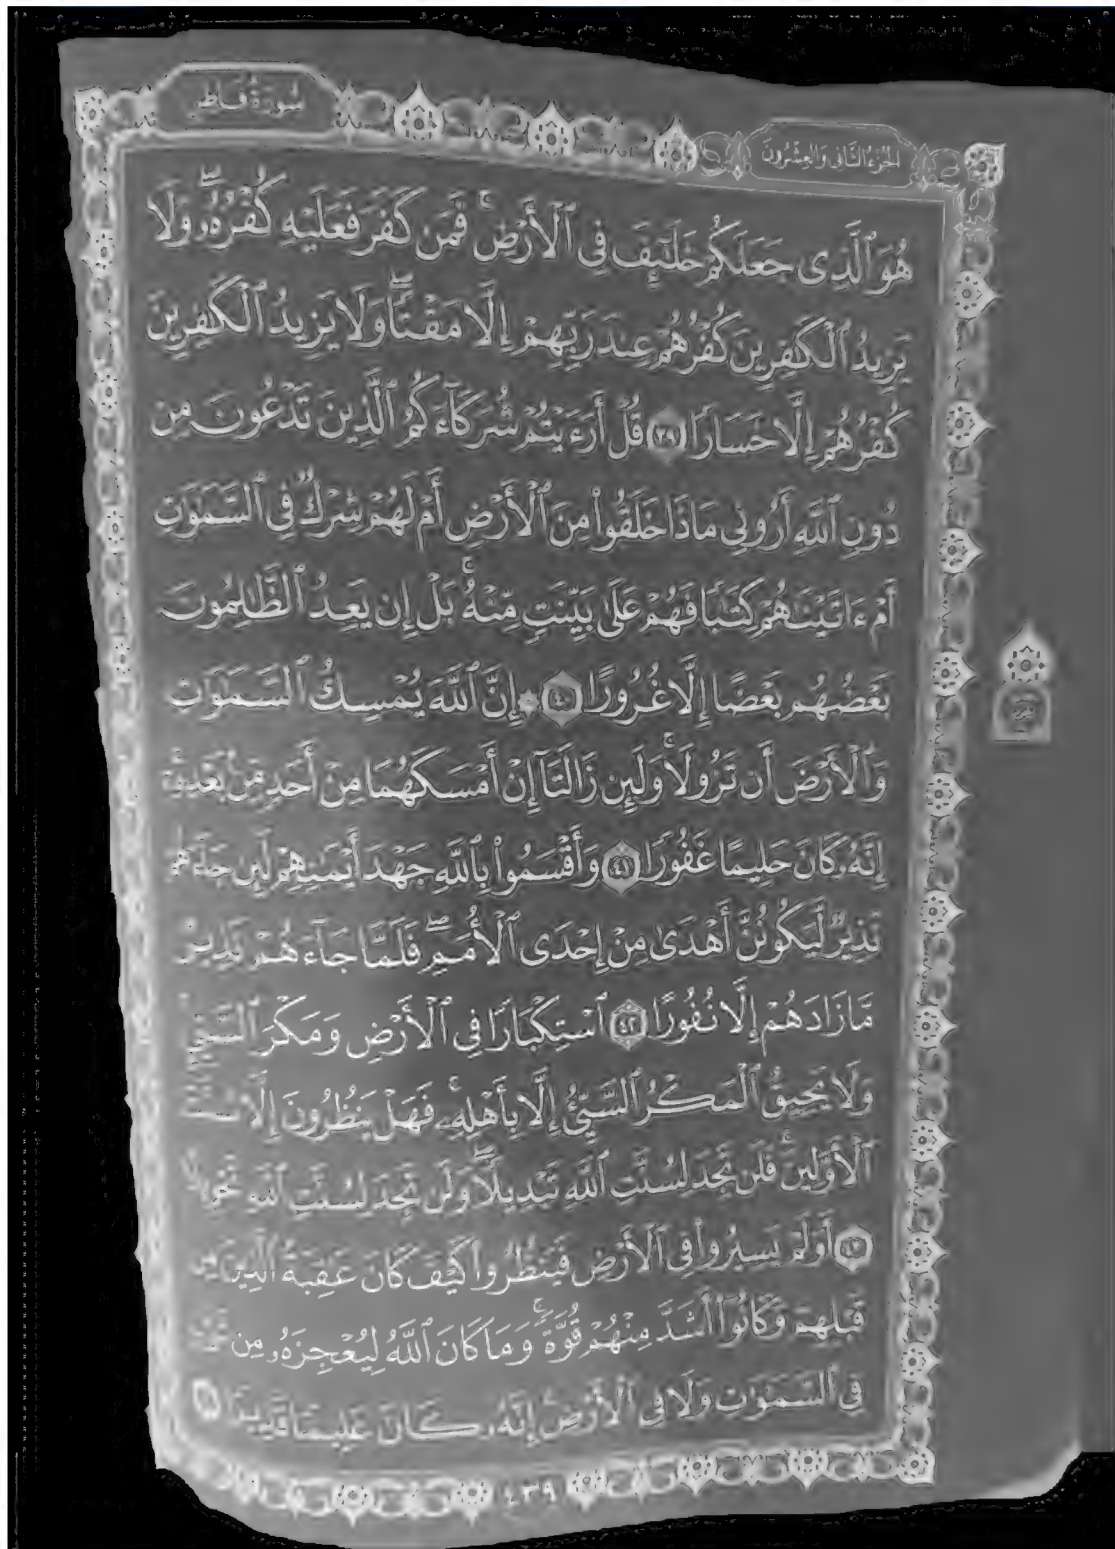 الجُزْءُ الثَّانِي وَالعِشْرُونَ
سُورَةُ فَاطِرٍ
هُوَ ٱلَّذِى جَعَلَكُمْ خَلَٰٓئِفَ فِى ٱلْأَرْضِ ۚ فَمَن كَفَرَ فَعَلَيْهِ كُفْرُهُۥ ۖ وَلَا
يَزِيدُ ٱلْكَٰفِرِينَ كُفْرُهُمْ عِندَ رَبِّهِمْ إِلَّا مَقْتًا ۖ وَلَا يَزِيدُ ٱلْكَٰفِرِينَ
كُفْرُهُمْ إِلَّا خَسَارًا ٣٩ قُلْ أَرَءَيْتُمْ شُرَكَآءَكُمُ ٱلَّذِينَ تَدْعُونَ مِن
دُونِ ٱللَّهِ أَرُونِى مَاذَا خَلَقُوا۟ مِنَ ٱلْأَرْضِ أَمْ لَهُمْ شِرْكٌ فِى ٱلسَّمَٰوَٰتِ
أَمْ ءَاتَيْنَٰهُمْ كِتَٰبًا فَهُمْ عَلَىٰ بَيِّنَتٍ مِّنْهُ ۚ بَلْ إِن يَعِدُ ٱلظَّٰلِمُونَ
بَعْضُهُم بَعْضًا إِلَّا غُرُورًا ٤٠ ۞ إِنَّ ٱللَّهَ يُمْسِكُ ٱلسَّمَٰوَٰتِ
وَٱلْأَرْضَ أَن تَزُولَا ۚ وَلَئِن زَالَتَآ إِنْ أَمْسَكَهُمَا مِنْ أَحَدٍ مِّنۢ بَعْدِهِۦٓ ۚ
إِنَّهُۥ كَانَ حَلِيمًا غَفُورًا ٤١ وَأَقْسَمُوا۟ بِٱللَّهِ جَهْدَ أَيْمَٰنِهِمْ لَئِن جَآءَهُمْ
نَذِيرٌ لَّيَكُونُنَّ أَهْدَىٰ مِنْ إِحْدَى ٱلْأُمَمِ ۖ فَلَمَّا جَآءَهُمْ نَذِيرٌ
مَّا زَادَهُمْ إِلَّا نُفُورًا ٤٢ ٱسْتِكْبَارًا فِى ٱلْأَرْضِ وَمَكْرَ ٱلسَّيِّئِ ۚ
وَلَا يَحِيقُ ٱلْمَكْرُ ٱلسَّيِّئُ إِلَّا بِأَهْلِهِۦ ۚ فَهَلْ يَنظُرُونَ إِلَّا سُنَّتَ
ٱلْأَوَّلِينَ ۚ فَلَن تَجِدَ لِسُنَّتِ ٱللَّهِ تَبْدِيلًا ۖ وَلَن تَجِدَ لِسُنَّتِ ٱللَّهِ تَحْوِيلًا
٤٣ أَوَلَمْ يَسِيرُوا۟ فِى ٱلْأَرْضِ فَيَنظُرُوا۟ كَيْفَ كَانَ عَٰقِبَةُ ٱلَّذِينَ مِن
قَبْلِهِمْ وَكَانُوٓا۟ أَشَدَّ مِنْهُمْ قُوَّةً ۚ وَمَا كَانَ ٱللَّهُ لِيُعْجِزَهُۥ مِن
فِى ٱلسَّمَٰوَٰتِ وَلَا فِى ٱلْأَرْضِ ۚ إِنَّهُۥ كَانَ عَلِيمًا قَدِيرًا ٤٤
٤٣٩